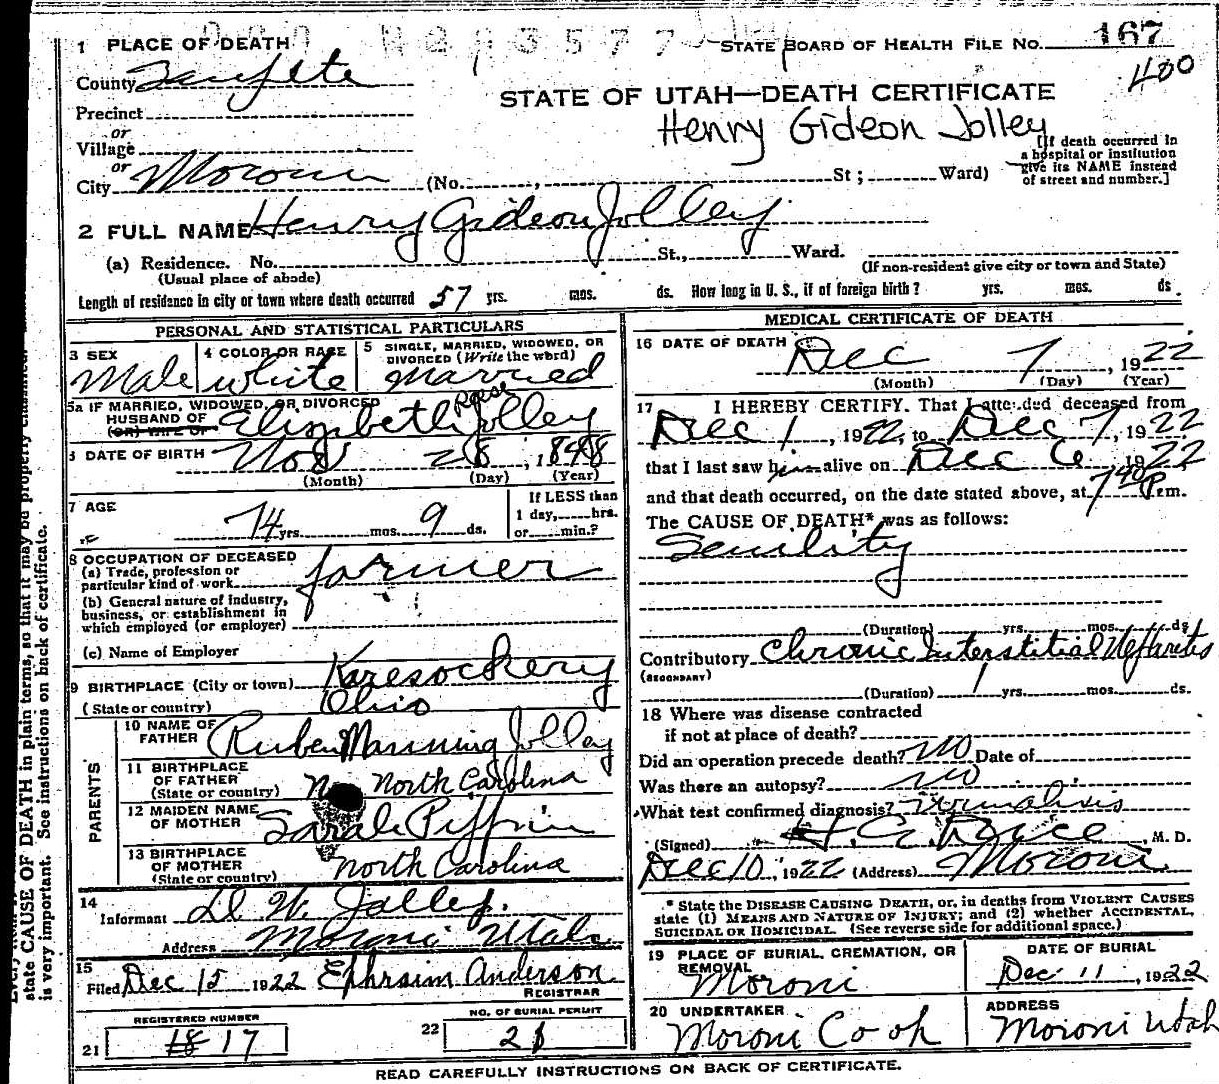 1 PLACE OF DEATH
STATE BOARD OF HEALTH FILE NO. 167
400
County Sanpete
STATE OF UTAH—DEATH CERTIFICATE
Precinct
Henry Gideon Jolley
or
Village
or
City Moroni (No. , St ; Ward)
[If death occurred in
a hospital or institution
give its NAME instead
of street and number.]
2 FULL NAME Henry Gideon Jolley
(a) Residence. No. St., Ward.
(Usual place of abode)
(If non-resident give city or town and State)
Length of residence in city or town where death occurred 57 yrs. mos. ds. How long in U. S., if of foreign birth? yrs. mos. ds.
PERSONAL AND STATISTICAL PARTICULARS
3 SEX
Male
4 COLOR OR RACE
white
5 SINGLE, MARRIED, WIDOWED, OR
DIVORCED (Write the word)
married
5a IF MARRIED, WIDOWED, OR DIVORCED
HUSBAND OF
(OR) WIFE OF
Elizabeth Reese Jolley
6 DATE OF BIRTH Nov 28, 1848
(Month) (Day) (Year)
7 AGE
74 yrs. mos. 9 ds.
If LESS than
1 day, hrs.
or min.?
8 OCCUPATION OF DECEASED
(a) Trade, profession or
particular kind of work farmer
(b) General nature of industry,
business, or establishment in
which employed (or employer)
(c) Name of Employer
9 BIRTHPLACE (City or town) Karesockery
(State or country) Ohio
PARENTS
10 NAME OF
FATHER Ruben Manning Jolley
11 BIRTHPLACE
OF FATHER
(State or country) North Carolina
12 MAIDEN NAME
OF MOTHER Sarah Piffin
13 BIRTHPLACE
OF MOTHER
(State or country) North Carolina
14
Informant D W. Jolley.
Address Moroni Utah
15
Filed Dec 15 1922 Ephraim Anderson
REGISTRAR
REGISTERED NUMBER
21 18 17
NO. OF BURIAL PERMIT
22 21
MEDICAL CERTIFICATE OF DEATH
16 DATE OF DEATH Dec 7, 1922
(Month) (Day) (Year)
17 I HEREBY CERTIFY. That I attended deceased from
Dec 1, 1922, to Dec 7, 1922
that I last saw him alive on Dec 6, 1922
and that death occurred, on the date stated above, at 7 40 P. m.
The CAUSE OF DEATH* was as follows:
Senility
(Duration) yrs. mos. ds
Contributory Chronic Interstitial Neffaritis
(SECONDARY)
(Duration) 1 yrs. mos. ds.
18 Where was disease contracted
if not at place of death?
Did an operation precede death? no Date of
Was there an autopsy? no
What test confirmed diagnosis?
(Signed) M. D.
Dec 10, 1922 (Address) Moroni
* State the DISEASE CAUSING DEATH, or, in deaths from VIOLENT CAUSES
state (1) MEANS AND NATURE OF INJURY; and (2) whether ACCIDENTAL,
SUICIDAL OR HOMICIDAL. (See reverse side for additional space.)
19 PLACE OF BURIAL, CREMATION, OR
REMOVAL
Moroni
DATE OF BURIAL
Dec 11, 1922
20 UNDERTAKER
Moroni Co op
ADDRESS
Moroni Utah
READ CAREFULLY INSTRUCTIONS ON BACK OF CERTIFICATE.
state CAUSE OF DEATH in plain terms, so that it may be properly classified.
is very important. See instructions on back of certificate.